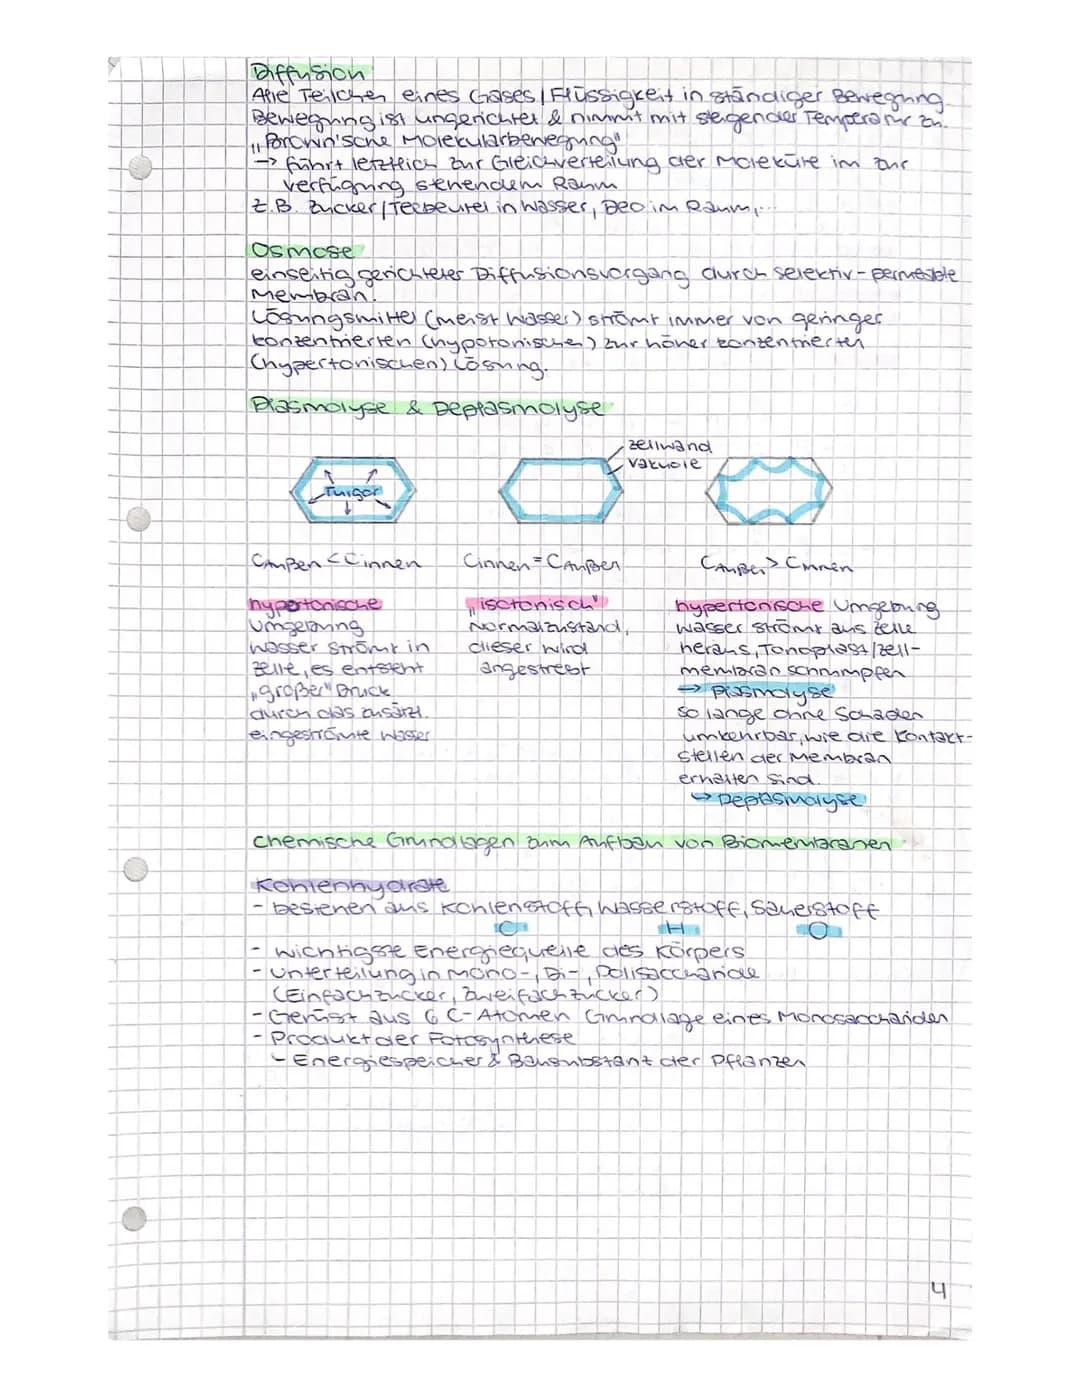 Diffusion
Alle Teilchen eines Gases / Flüssigkeit in ständiger Bewegung.
Bewegung ist ungerichtet & nimmt mit steigender Temperatur zu.
„Brown'sche Molekularbewegung"
→ führt letztlich zur Gleichverteilung der Moleküle im zur
verfügung stehendem Raum
z.B. Zucker/Teebeutel in Wasser, Deo im Raum,...
Osmose
einseitig gerichteter Diffusionsvorgang durch selektiv-permeable
Membran.
Lösungsmittel (meist Wasser) strömt immer von geringer
konzentrierten (hypotonischen) zur höher konzentrierten
(hypertonischen) Lösung.
Plasmolyse & Deplasmolyse
Zellwand
Vakuole
Turgor
CAußen < Cinnen
Cinnen = CAußen
CAußen > Cinnen
hypotonische
Umgebung
Wasser strömt in
Zelle, es entsteht
„großer" Druck
durch das zusätzl.
eingeströmte Wasser
„isotonisch"
Normalzustand,
dieser wird
angestrebt
hypertonische Umgebung
Wasser strömt aus Zelle
heraus, Tonoplast/Zell-
membran schrumpfen
→ Plasmolyse
so lange ohne Schaden
umkehrbar, wie die Kontakt-
stellen der Membran
erhalten sind.
↳ Deplasmolyse
Chemische Grundlagen zum Aufbau von Biomembranen
Kohlenhydrate
- bestehen aus Kohlenstoff, Wasserstoff, Sauerstoff
C H O
- wichtigste Energiequelle des Körpers
- Unterteilung in Mono-, Di-, Polisaccharide
(Einfachzucker, Zweifachzucker)
- Gerüst aus 6 C-Atomen Grundlage eines Monosacchariden
- Produkt der Fotosynthese
↳ Energiespeicher & Bausubstanz der Pflanzen
4